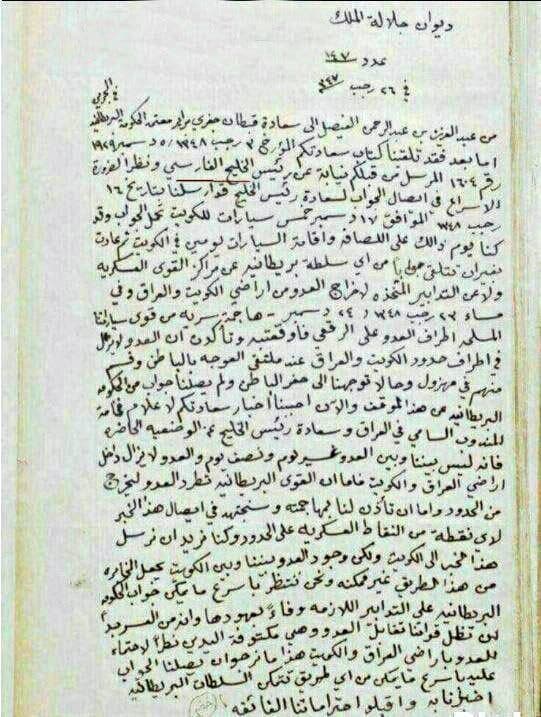 ديوان جلالة الملك
عدد ١٤٠٧
في ٢٦ رجب ٣٤٧
من عبد العزيز بن عبد الرحمن الفيصل الى سعادة قبطان المعتمد الحكومة البريطانية في
اما بعد فقد تلقينا كتاب سعادتكم المؤرخ ٣ رجب ١٣٤٨ / ٥ دسمبر ١٩٢٩
رقم ١٦٠٤ المرسل من قبلكم نيابة عن رئيس الخليج الفارسي ونظرا لضرورة
الاسراع في ايصال الجواب لسعادة رئيس الخليج قد ارسلنا بتاريخ ١٦
رجب ١٣٤٨ الموافق ١٧ دسمبر خمس سيارات للكويت تحمل الجواب وقد
كنا يوم ذالك على اللصافه واقامة السيارات يومين في الكويت ثم عادت
بغير ان نتلقى جوابا من اي سلطة بريطانيه عن مراكز القوى العسكريه
ولا عن التدابير المتخذه لاخراج العدو من اراضي الكويت والعراق وفي
مساء ٢٣ رجب ١٣٤٨ / ٢٤ دسمبر - هاجمة سريه من قوى سياراتنا
المسلحه اطراف العدو على الرقعي فأوقعته وتأكد ان العدو لا يزال
في اطراف حدود الكويت والعراق عند ملتقى العوجه بالباطن وقسم
منهم في مهزول وحالا توجهنا الى حفر الباطن ولم يصلنا جواب من الحكومه
البريطانيه عن هذا الموقف والان احببنا أخبار سعادتكم لاعلام فخامة
المندوب السامي في العراق وسعادة رئيس الخليج الوضعيه الحاضره
فانه ليس بيننا وبين العدو غير يوم ونصف يوم والعدو لا يزال داخل
اراضي العراق والكويت فاما ان القوى البريطانيه تطرد العدو ليخرج
من الحدود واما ان تأذن لنا بمهاجمته وسنجتهد في ايصال هذا الخبر
لاي نقطة من النقاط العسكريه على الحدود وكنا نريد ان نرسل
هذا الخبر الى الكويت ولكن وجود العدو بيننا وبين الكويت يجعل المخابره
من هذا الطريق غير ممكنه ونحن ننتظر باسرع ما يمكن جواب الحكومه
البريطانيه على التدابير اللازمه وفاءً بعهودها وانه من
ان تظل قواتنا تقابل العدو وهي مكتوفة اليدين نظراً لاحتماء
العدو باراضي العراق والكويت هذا ما نرجو ان يصلنا الجواب
عليه باسرع ما يمكن من اي طريق تتمكن السلطات البريطانيه
اخبارنا به واقبلوا احتراماتنا الفائقه